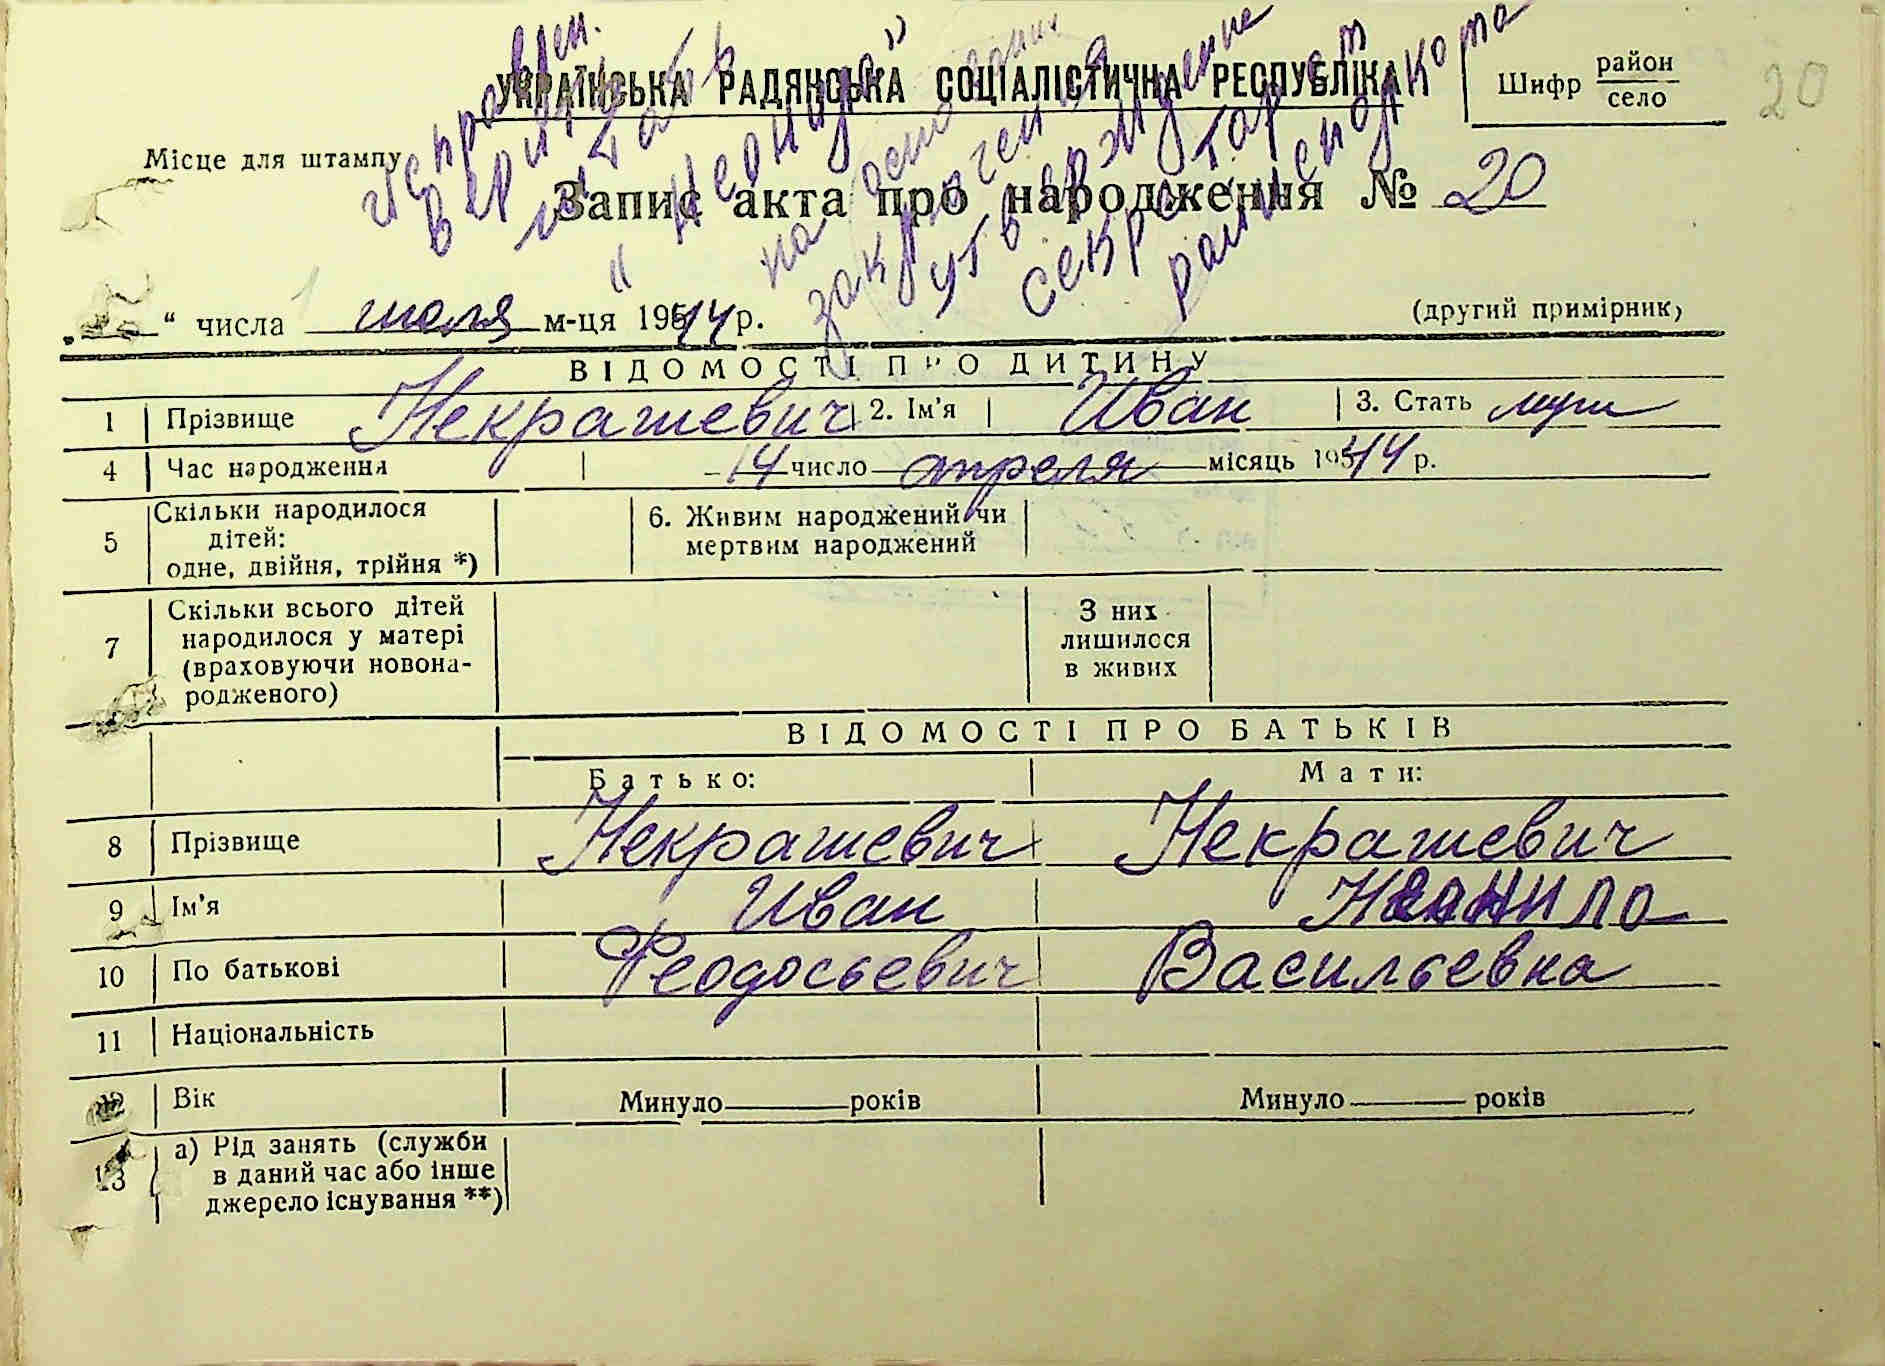 20
УКРАЇНСЬКА РАДЯНСЬКА СОЦІАЛІСТИЧНА РЕСПУБЛІКА
Шифр район
село
Місце для штампу
Запис акта про народження № 20
" числа июля м-ця 1944 р.
(другий примірник)
ВІДОМОСТІ ПРО ДИТИНУ
1 Прізвище Некрашевич 2. Ім'я Иван 3. Стать муж
4 Час народження 14 число апреля місяць 1944 р.
5 Скільки народилося
дітей:
одне, двійня, трійня *)
6. Живим народжений чи
мертвим народжений
7 Скільки всього дітей
народилося у матері
(враховуючи новона-
родженого)
З них
лишилося
в живих
ВІДОМОСТІ ПРО БАТЬКІВ
Батько: Мати:
8 Прізвище Некрашевич Некрашевич
9 Ім'я Иван
10 По батькові Феодосьевич Васильевна
11 Національність
12 Вік Минуло року Минуло років
13 а) Рід занять (служби
в даний час або інше
джерело існування **)